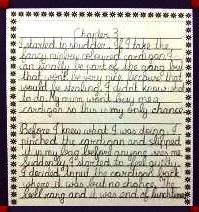 Chapter 3
I started to shudder. If I take the
fancy nigloy coloured cardigan I
can finally be part of the gang but
that wont be very nice because that
would be stealing. I didnt know what
to do. My mum wont buy me a
cardigan so this is my only chance.
Before I knew what I was doing, I
pinched the cardigan and slipped
it in my bag before anyone saw me
Suddenly, I started to feel guilty.
I decided to put the cardigan back
where it was but no chance. The
bell rang and it was end of lunchtime